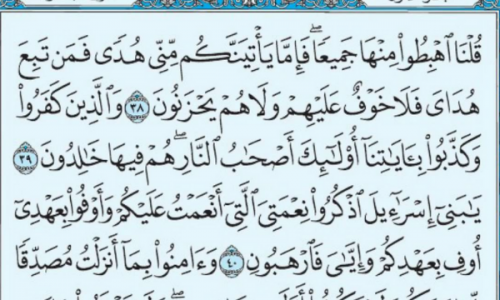 قُلْنَا ٱهْبِطُوا۟ مِنْهَا جَمِيعًا ۖ فَإِمَّا يَأْتِيَنَّكُم مِّنِّى هُدًى فَمَن تَبِعَ
هُدَاىَ فَلَا خَوْفٌ عَلَيْهِمْ وَلَا هُمْ يَحْزَنُونَ ٣٨ وَٱلَّذِينَ كَفَرُوا۟
وَكَذَّبُوا۟ بِـَٔايَـٰتِنَآ أُو۟لَـٰٓئِكَ أَصْحَـٰبُ ٱلنَّارِ ۖ هُمْ فِيهَا خَـٰلِدُونَ ٣٩
يَـٰبَنِىٓ إِسْرَٰٓءِيلَ ٱذْكُرُوا۟ نِعْمَتِىَ ٱلَّتِىٓ أَنْعَمْتُ عَلَيْكُمْ وَأَوْفُوا۟ بِعَهْدِىٓ
أُوفِ بِعَهْدِكُمْ وَإِيَّـٰىَ فَٱرْهَبُونِ ٤٠ وَءَامِنُوا۟ بِمَآ أَنزَلْتُ مُصَدِّقًا